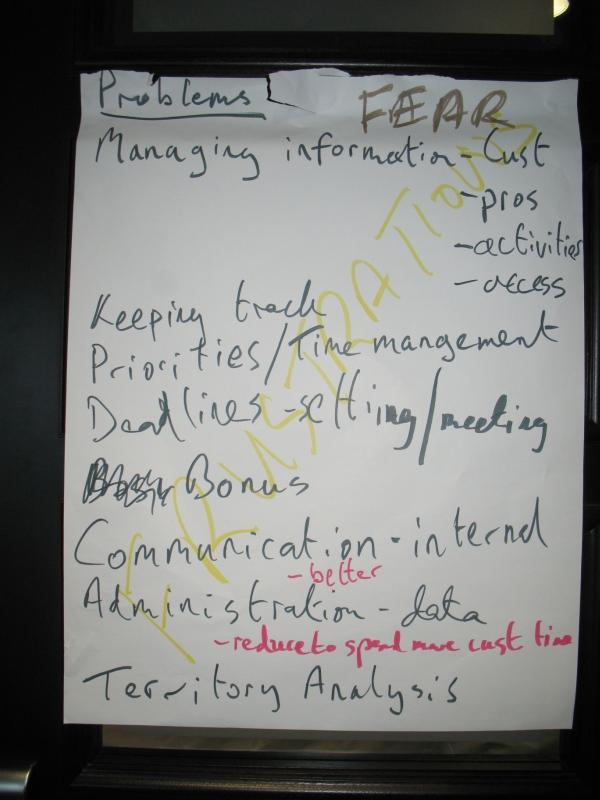 Problems
FEAR
Managing information - Cust
- pros
- activities
- access
Keeping track
Priorities / Time management
Deadlines - setting / meeting
Bonus
Communication - internal
- better
Administration - data
- reduce to spend more cust time
Territory Analysis
FRUSTRATIONS